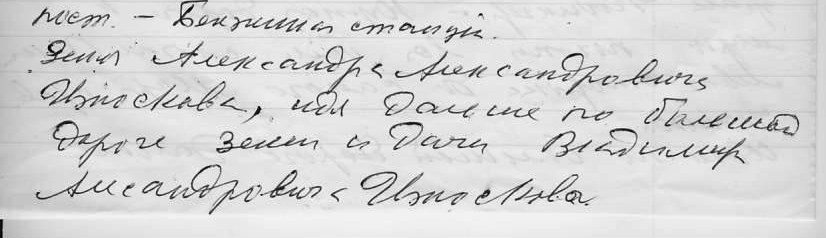 пост. – Бензинная станция.
Земля Александра Александровича
Износкова, идя дальше по большой
дороге земля и дачи Владимир
Алесандровича Износкова.